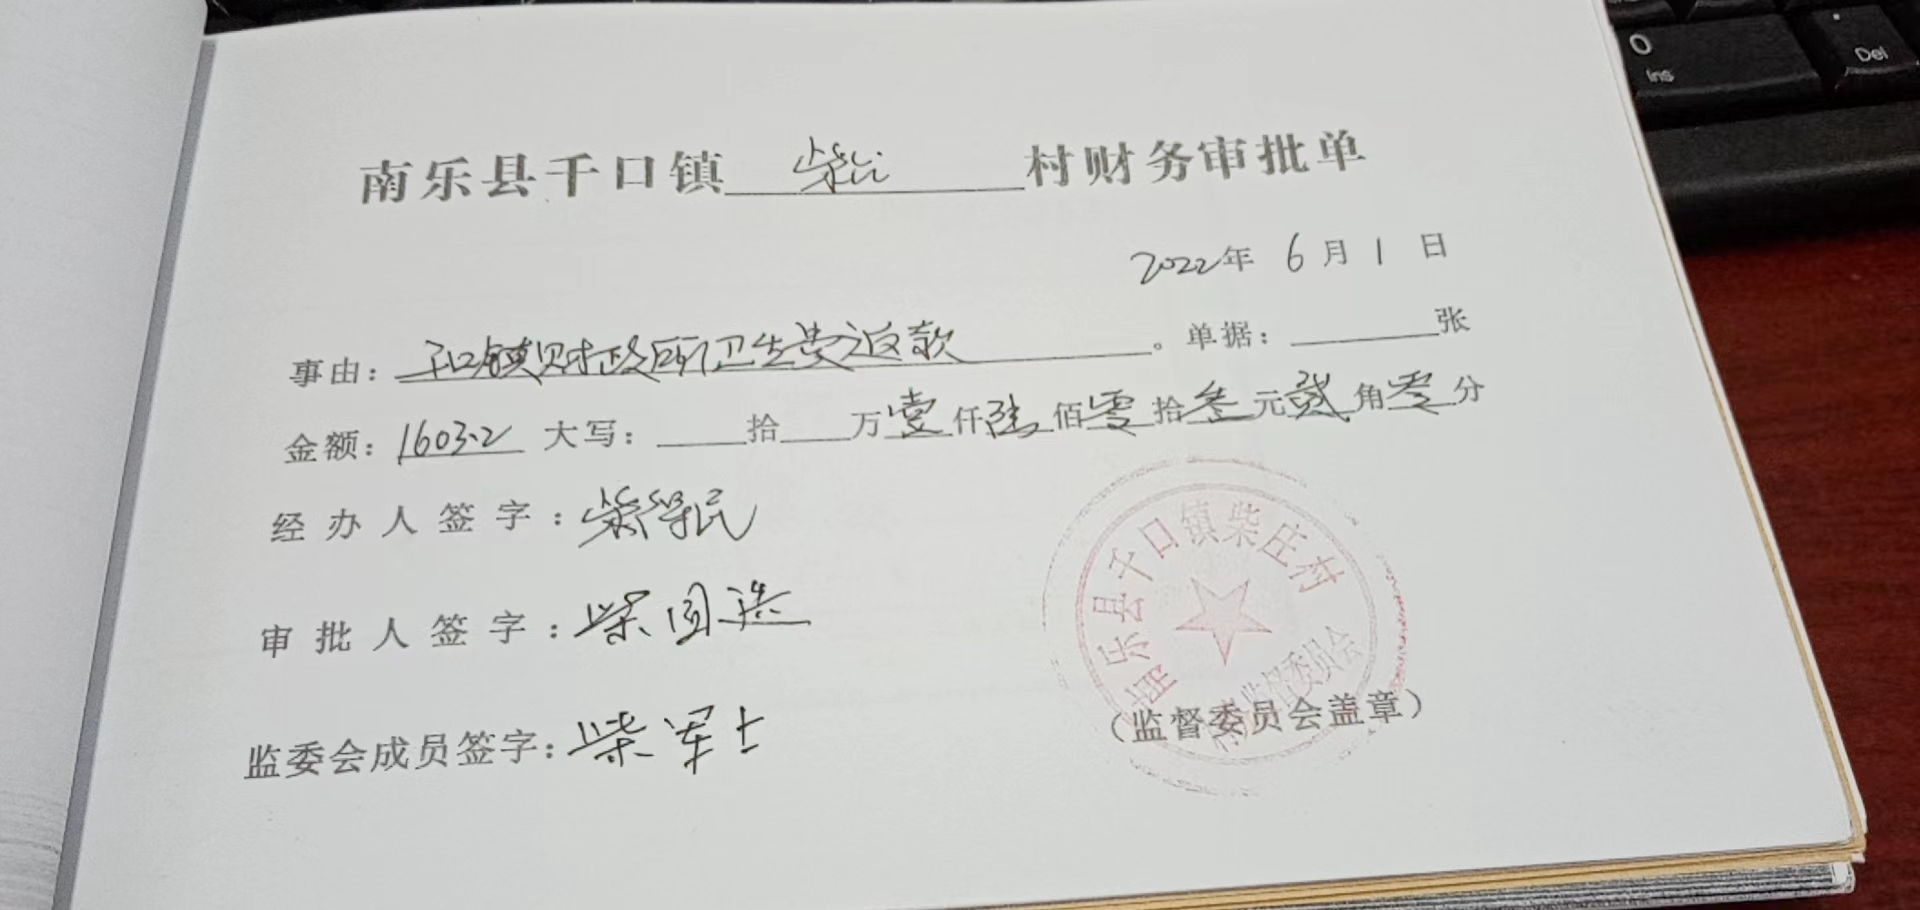 南乐县千口镇 柴庄 村财务审批单
2022年 6 月 1 日
事由：千口镇财政所卫生费返款。单据：张
金额：1603.2 大写：拾 万壹仟陆佰零拾叁元贰角零分
经办人签字：柴得民
审批人签字：柴国选
监委会成员签字：柴军士
南乐县千口镇柴庄村
监督委员会
（监督委员会盖章）
0
Ins
Del